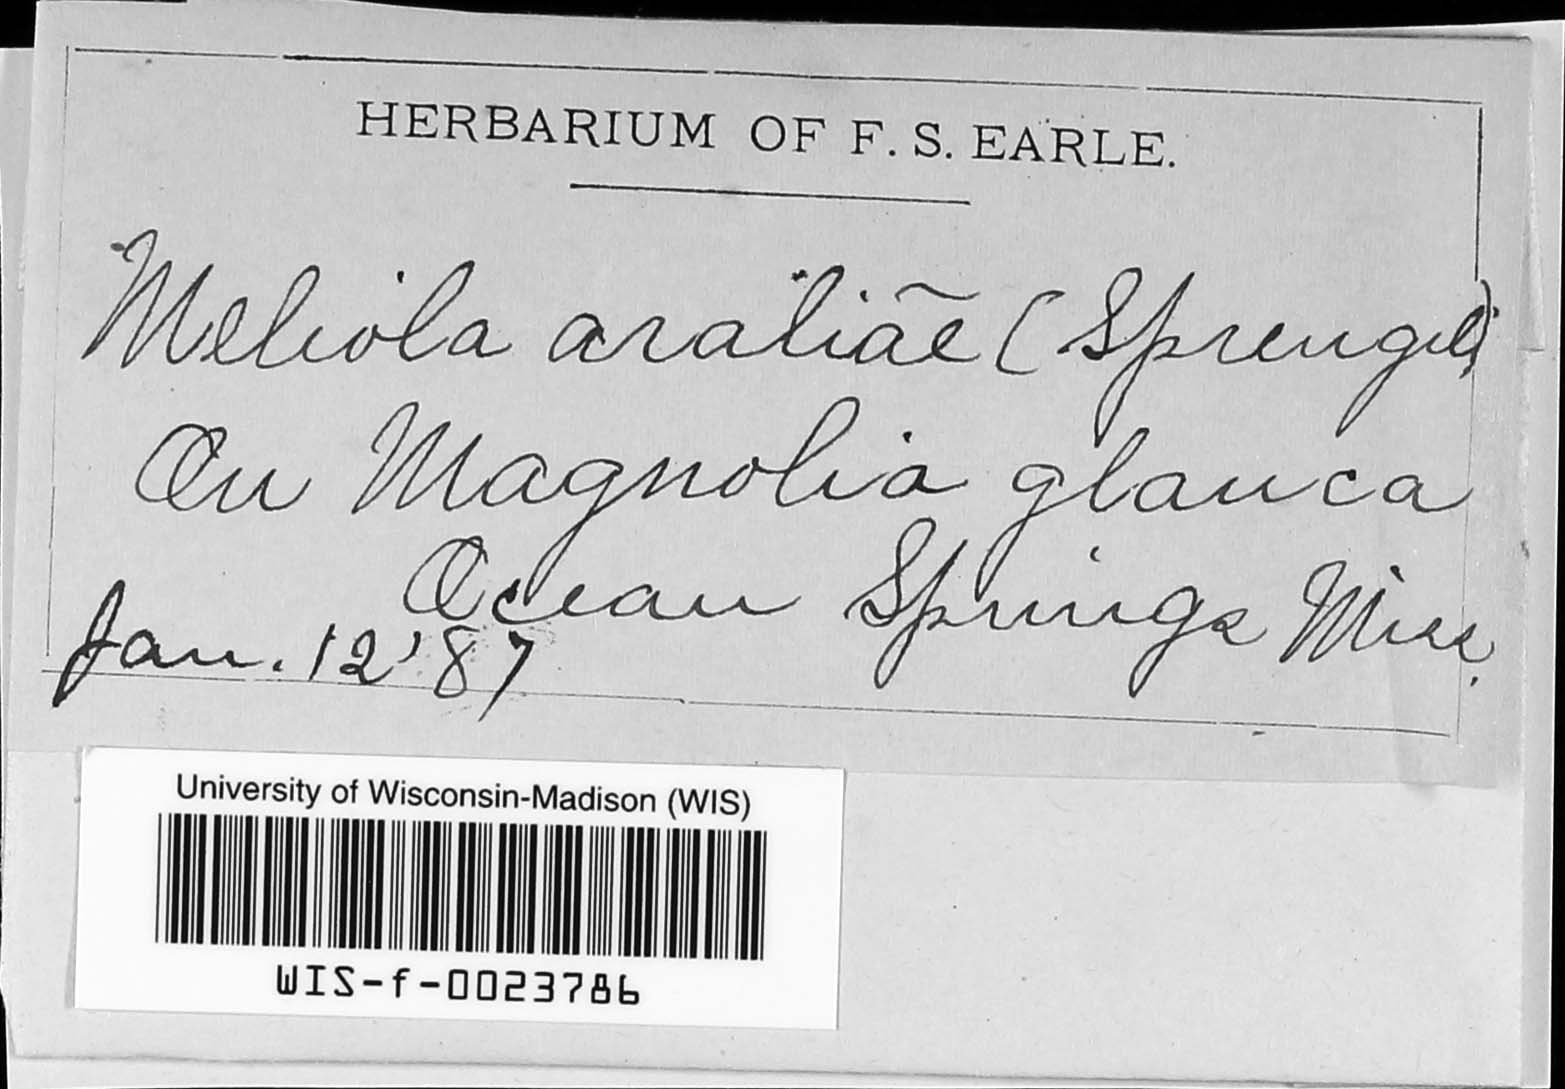 HERBARIUM OF F. S. EARLE.
Meliola araliae (Sprengel)
On Magnolia glauca
Ocean Springs Miss.
Jan. 12 '87
University of Wisconsin-Madison (WIS)
WIS-f-0023786